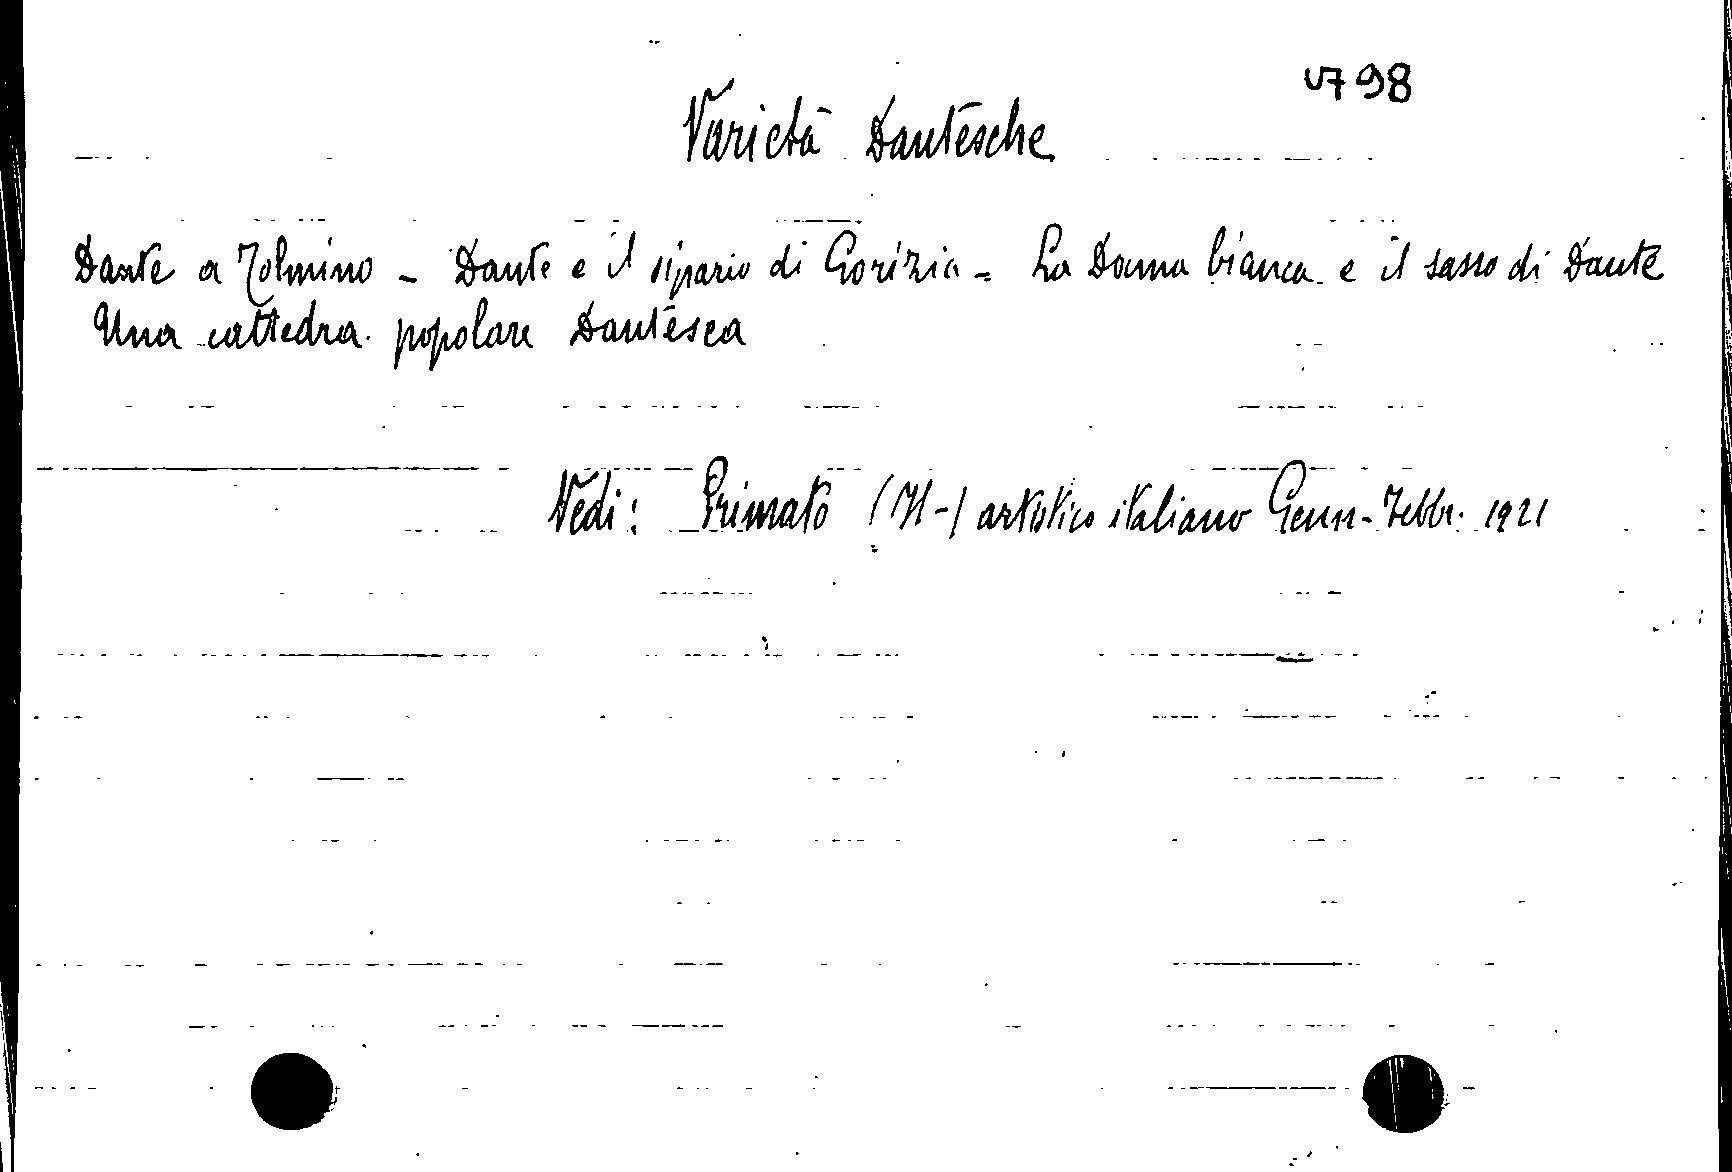 V798
Varietà Dantesche
Dante a Tolmino - Dante e il sipario di Gorizia - La Donna bianca e il sasso di Dante
Una cattedra popolare Dantesca
Vedi: Primato (Il-) artistico italiano Genn-Febbr. 1921